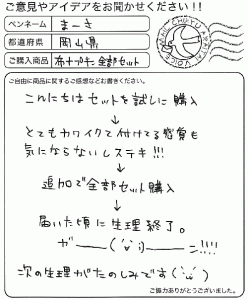 ご意見やアイデアをお聞かせください!!
ペンネーム まーさ
都道府県 岡山県
ご購入商品 布ナプキン全部セット
ご自由に商品に関するご感想などお書きください。
これにちはセットを試しに購入
↓
とてもカワイクて付けてる感覚も
気にならないしステキ!!!
↓
追加で全部セット購入
↓
届いた頃に生理終了。
ガーーーン!!!!
次の生理がたのしみです
ご協力ありがとうございました。